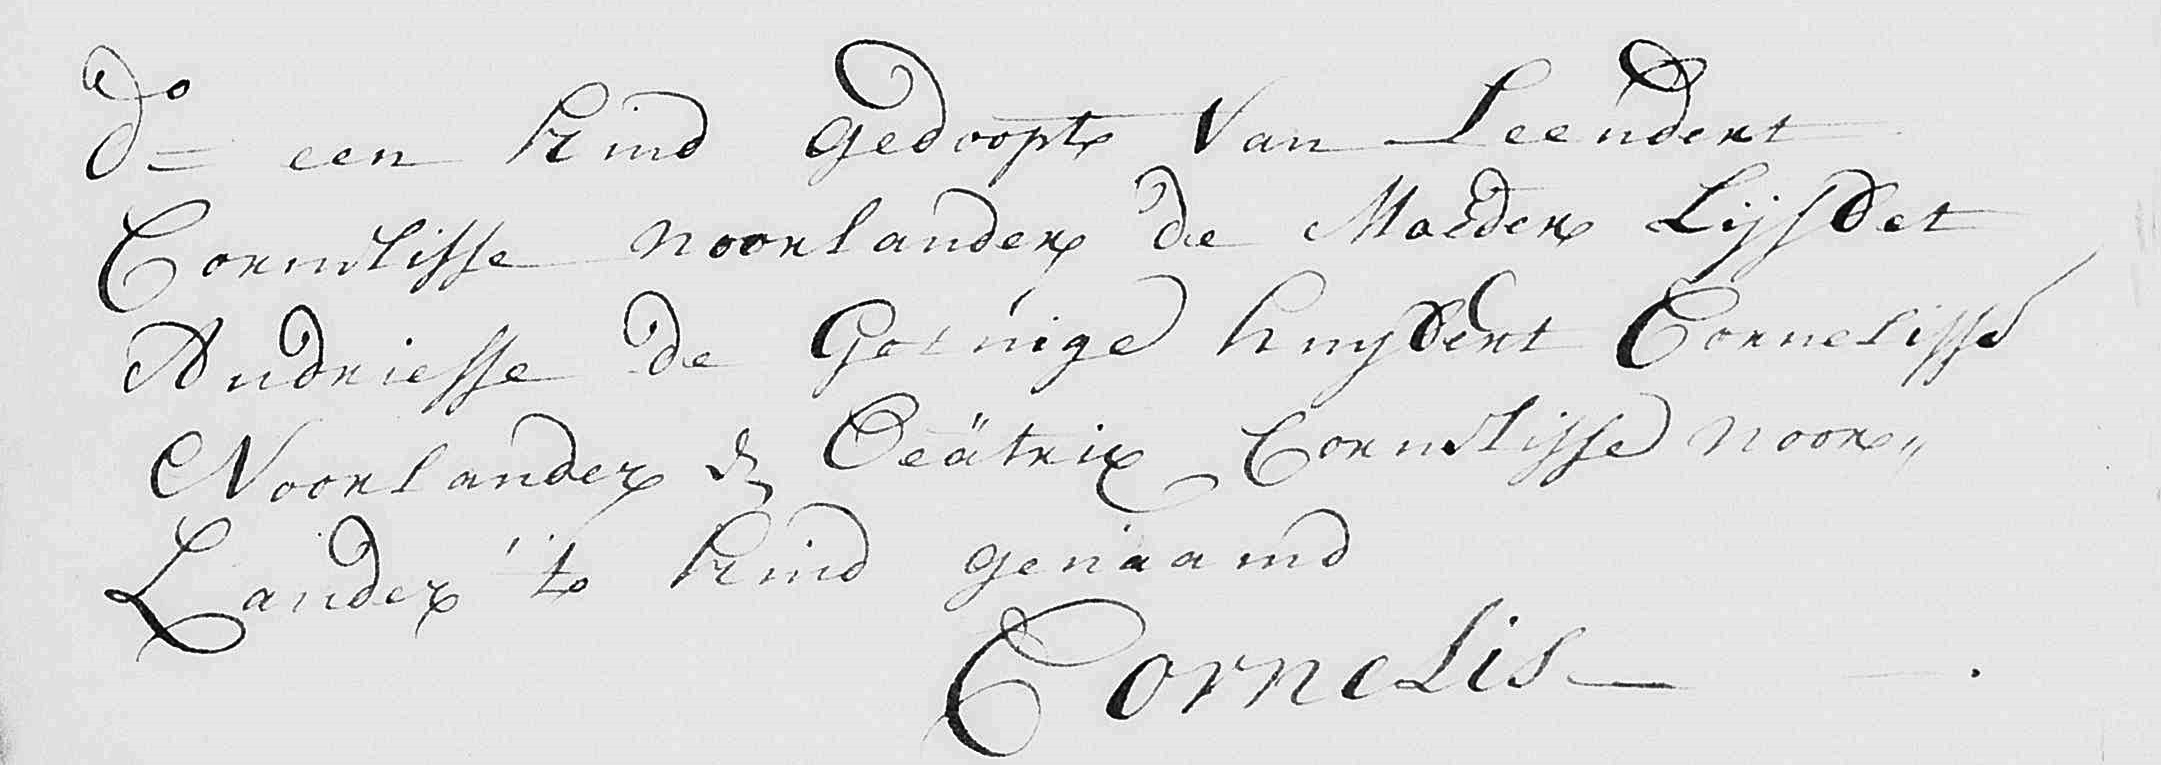 do= een kind gedoopt Van Leendert
Cornelisse noorlander de Moeder Lijsbet
Andriesse de Getuige huybert Cornelisse
Noorlander & Beätrix Cornelisse noor„
Lander 't kind genaamd
Cornelis